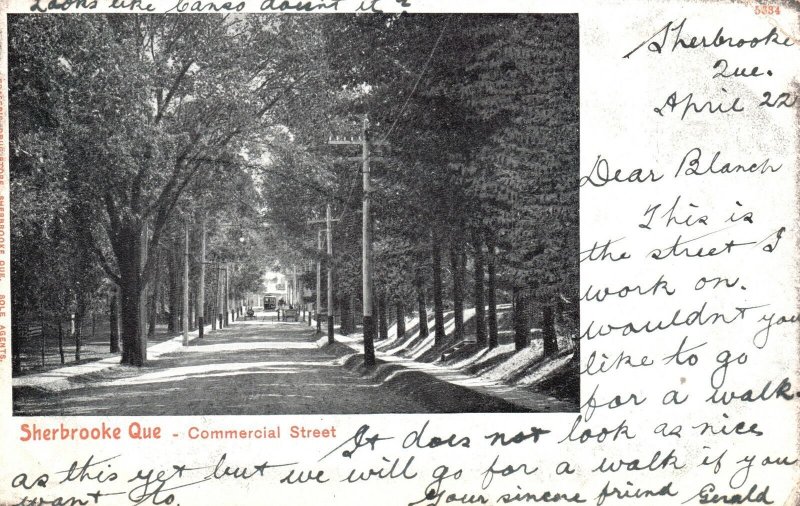 Looks like Canso doesn't it?
5634
Sherbrooke
Que.
April 22
Dear Blanch
This is
the street I
work on.
wouldn't you
like to go
for a walk.
Sherbrooke Que - Commercial Street
It does not look as nice
as this yet but we will go for a walk if you
want to.
Your sincere friend Gerald
DRUG STORE, SHERBROOKE QUE. SOLE AGENTS.